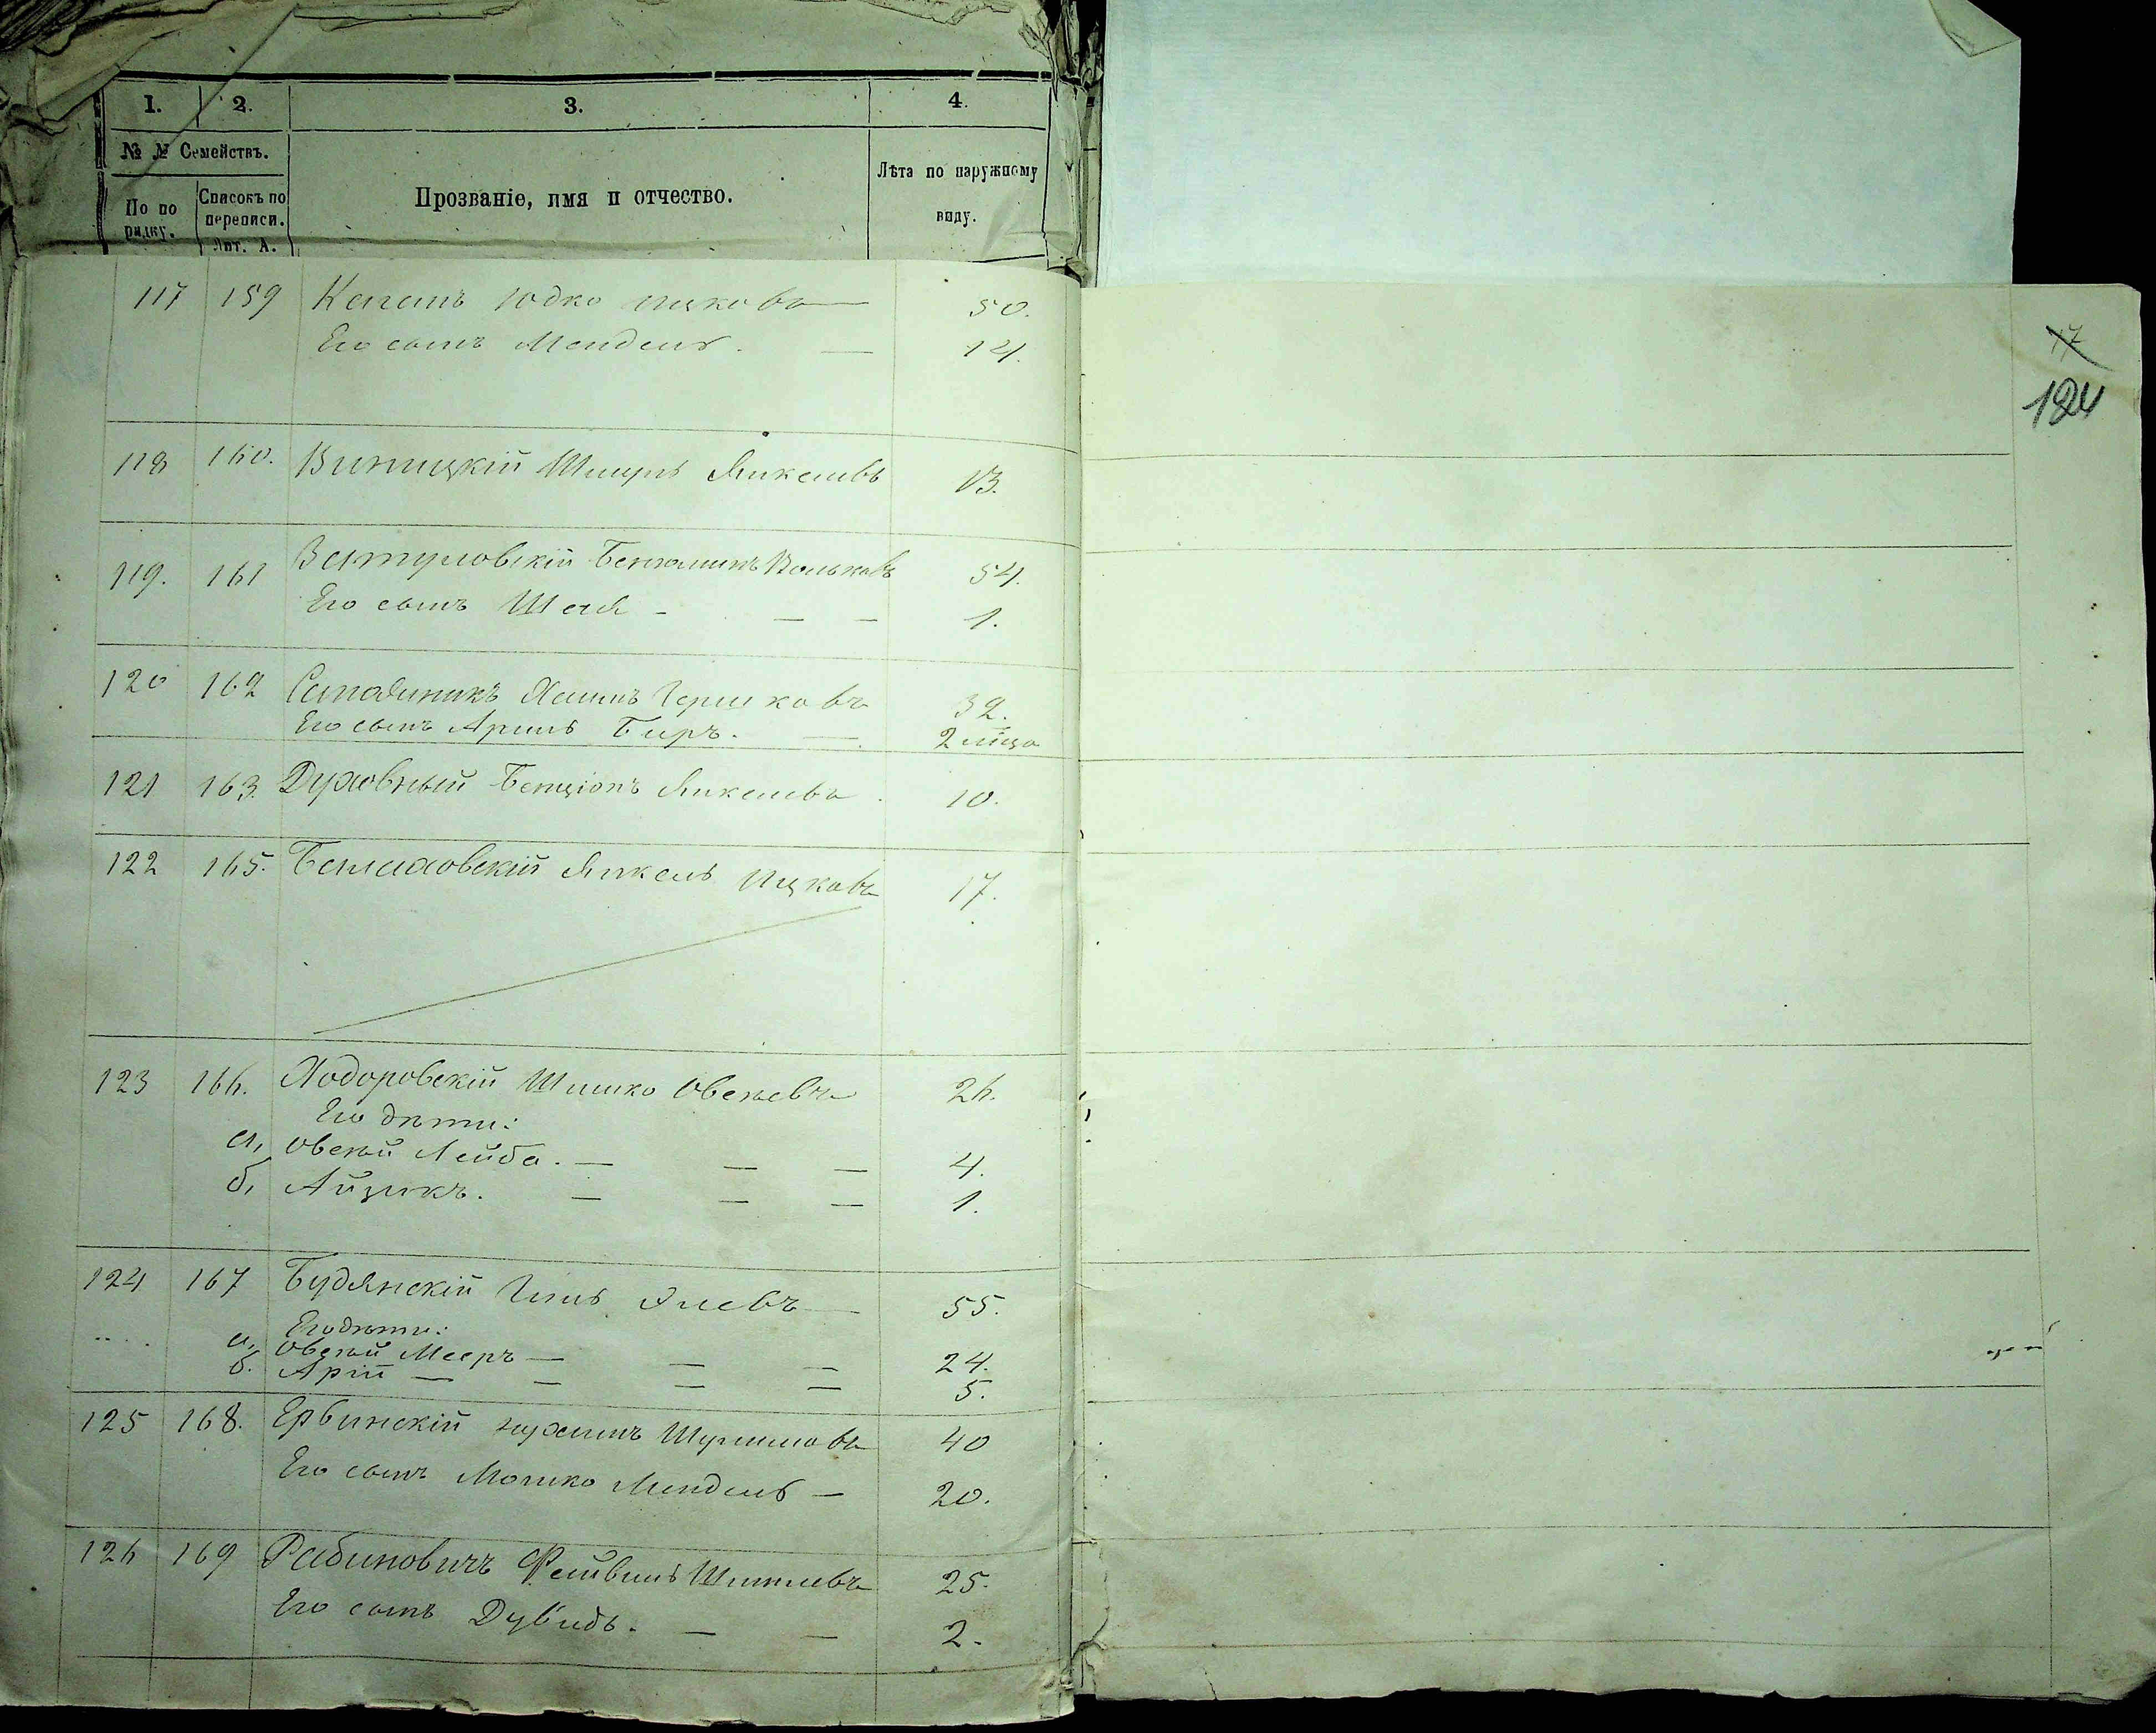 1. 2. 3. 4.
№ № Семействъ.
По по рядку. Списокъ по переписи. Лит. А. Прозваніе, имя и отчество. Лѣта по наружному виду.
117 159 Каганъ Юдко Ицковъ — 50.
Его сынъ Мендель. — 14.
17
124
118 160. Виницкій Шмуль Янкелевъ 13.
119. 161 Затуловскій Беніаминъ Вольковъ 54.
Его сынъ Шая - — — 1.
120 162 Хаимъ Гершковъ 32.
Его сынъ Аронъ Беръ. — 2 мѣсяца
121 163. Духовный Бенціонъ Янкелевъ. 10.
122 165. Балаховскій Янкель Ицковъ 17.
123 166. Ходоровскій Шимко Овсеевъ 26.
Его дѣти:
а, Овсѣй Лейба. — — — 4.
б, Айзикъ. — — — 1.
124 167 Будянскій Элевъ — 55.
Его дѣти:
а, Овсѣй Мееръ — — — 24.
б. Арій — — — — 5.
125 168. Ербинскій Нухимъ Шулимовъ 40
Его сынъ Мошко Мендель — 20.
126 169 Рабиновичъ Фейвель 25.
Его сынъ Дувидъ. — — 2.